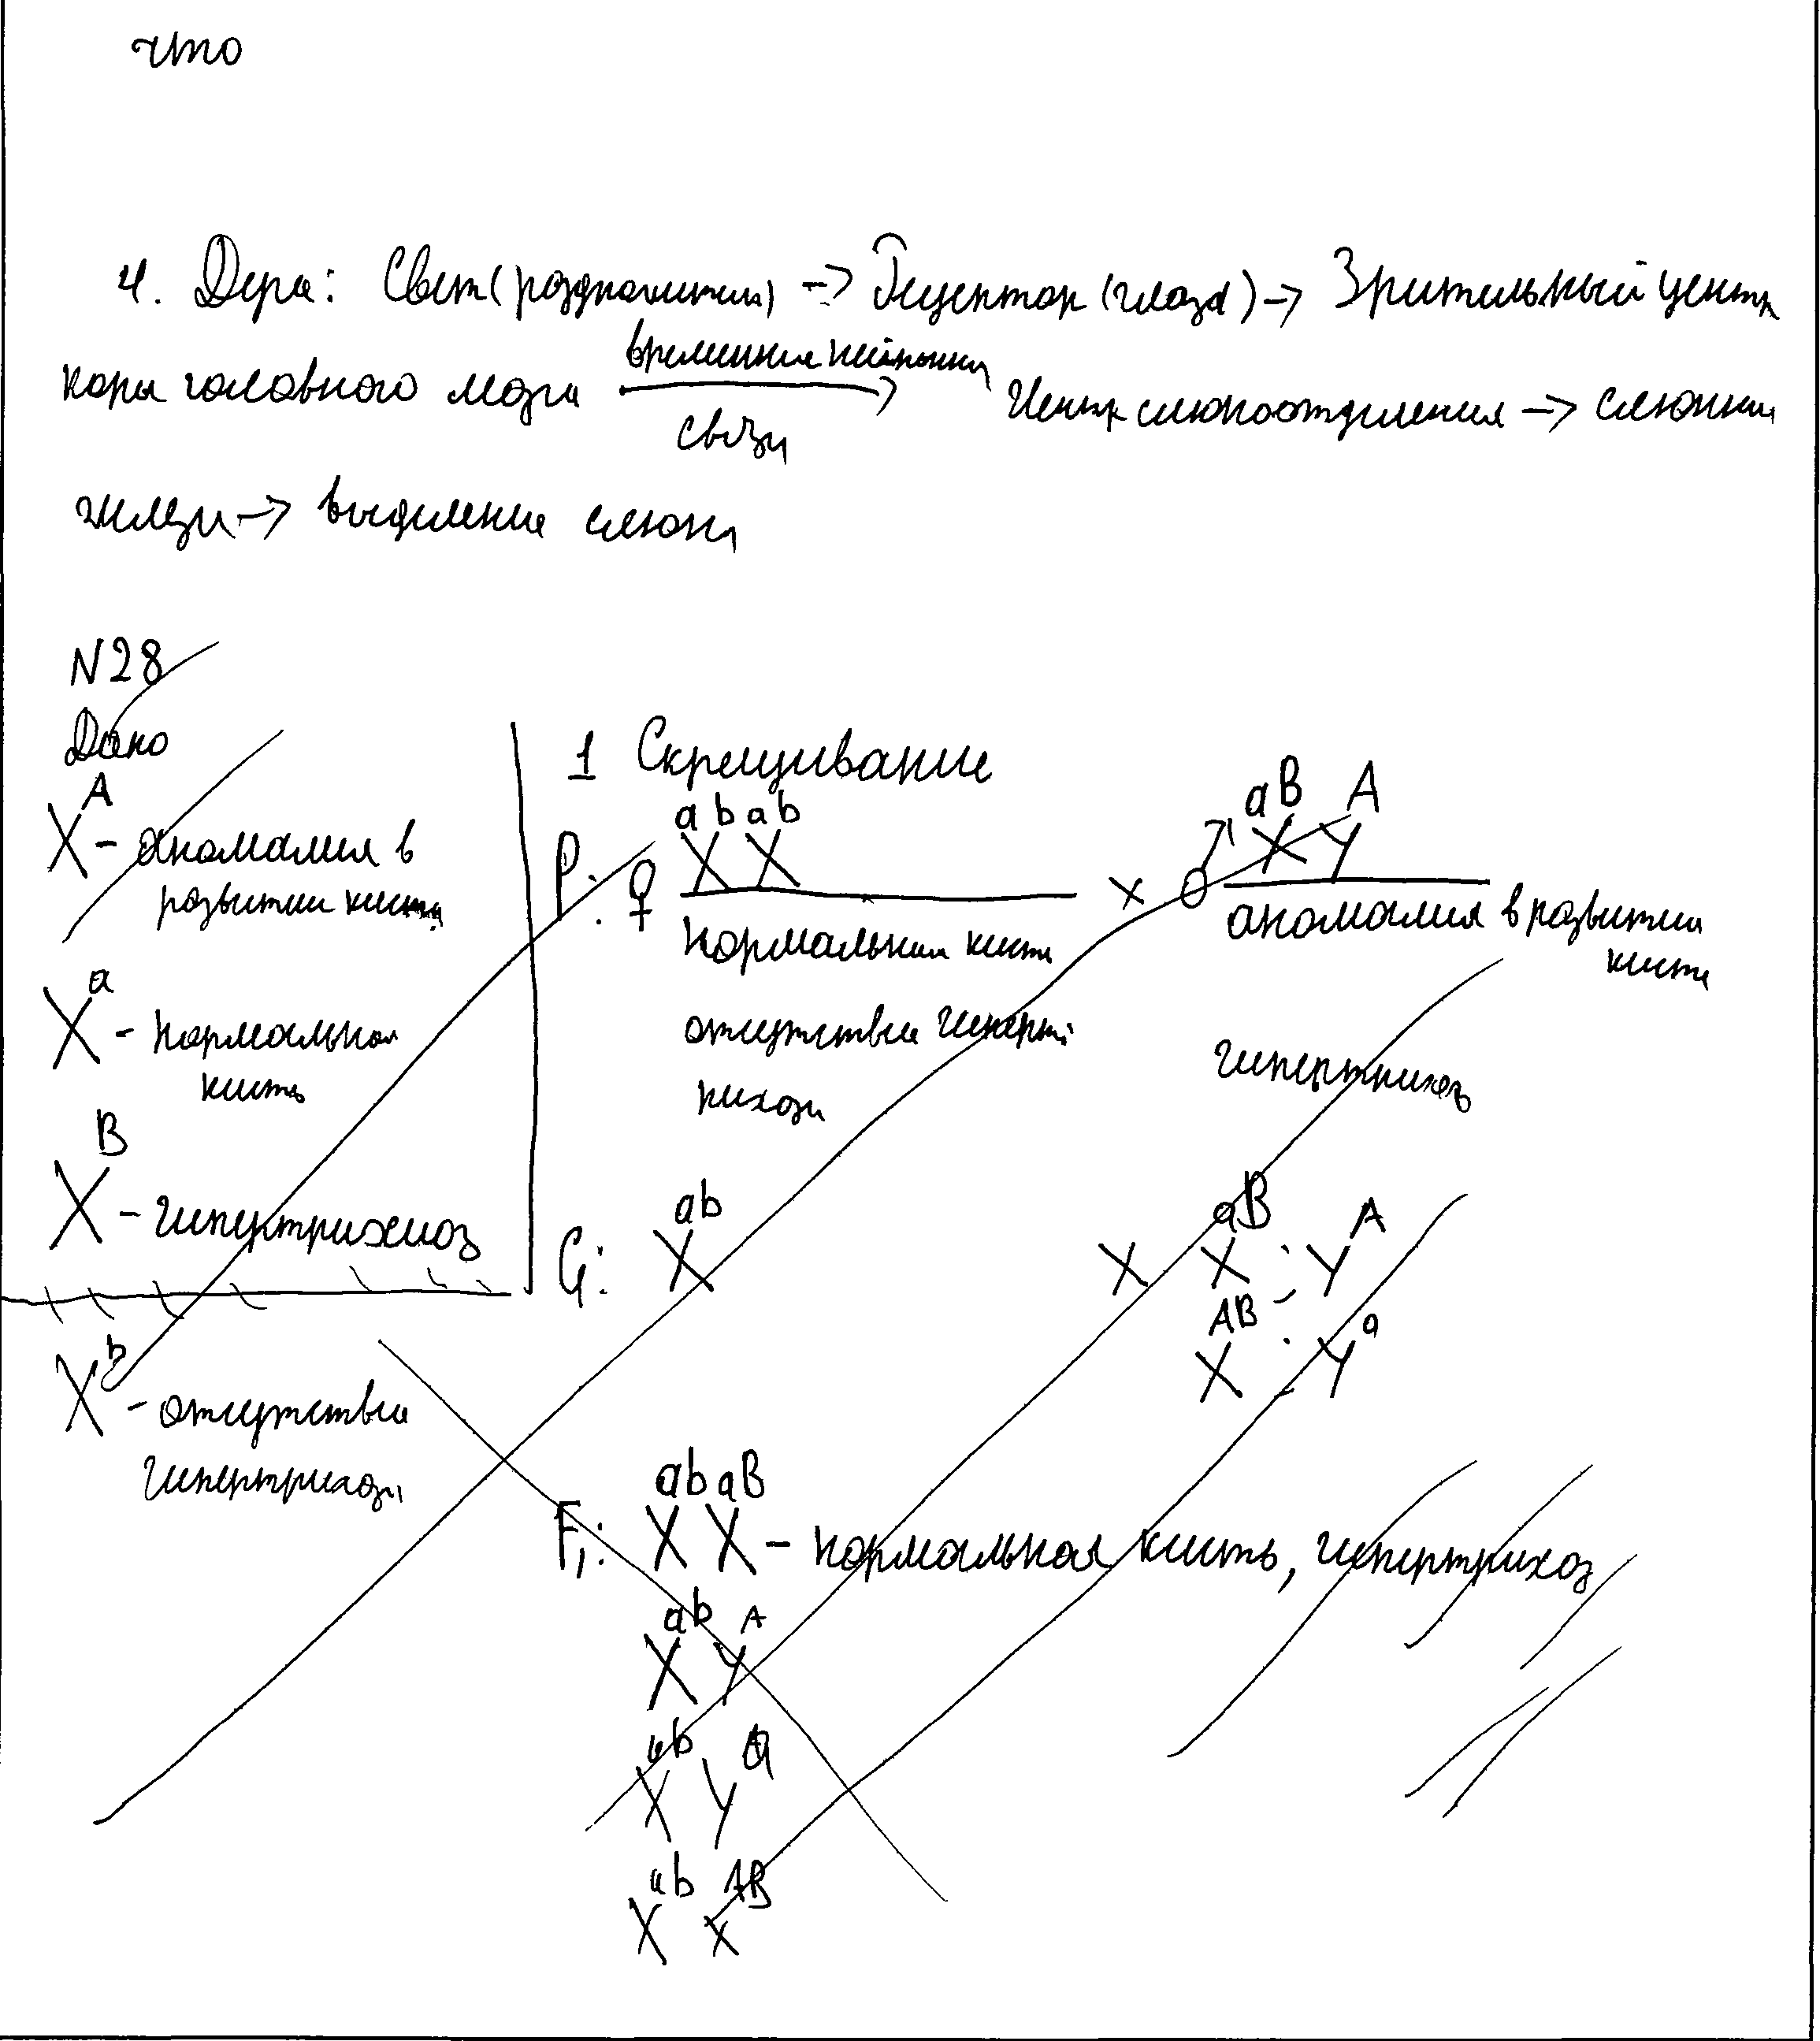 что
4. Дуга: Свет (раздражитель) -> Рецептор (глаза) -> Зрительный центр
коры головного мозга временные нейронны связи -> Центр слюноотделения -> слюнны
желези -> выделение слюны
N28
Дано
X^A - аномалия в
развитии кисти
X^a - нормальная
кисть
X^B - гипертрихиоз
X^b - отсутствие
гипертрихозы
1 Скрещивание
P: ♀ X^ab X^ab x ♂ X^aB Y^A
нормальная кисть
отсутствие гиперт
рихоза
аномалия в развитии
кисти
гипертрихоз
G: X^ab X X^aB ; Y^A
X^AB ; Y^a
F1: X^ab X^aB - нормальная кисть, гипертрихоз
X^ab Y^A
X^ab Y^a
X^ab X^AB